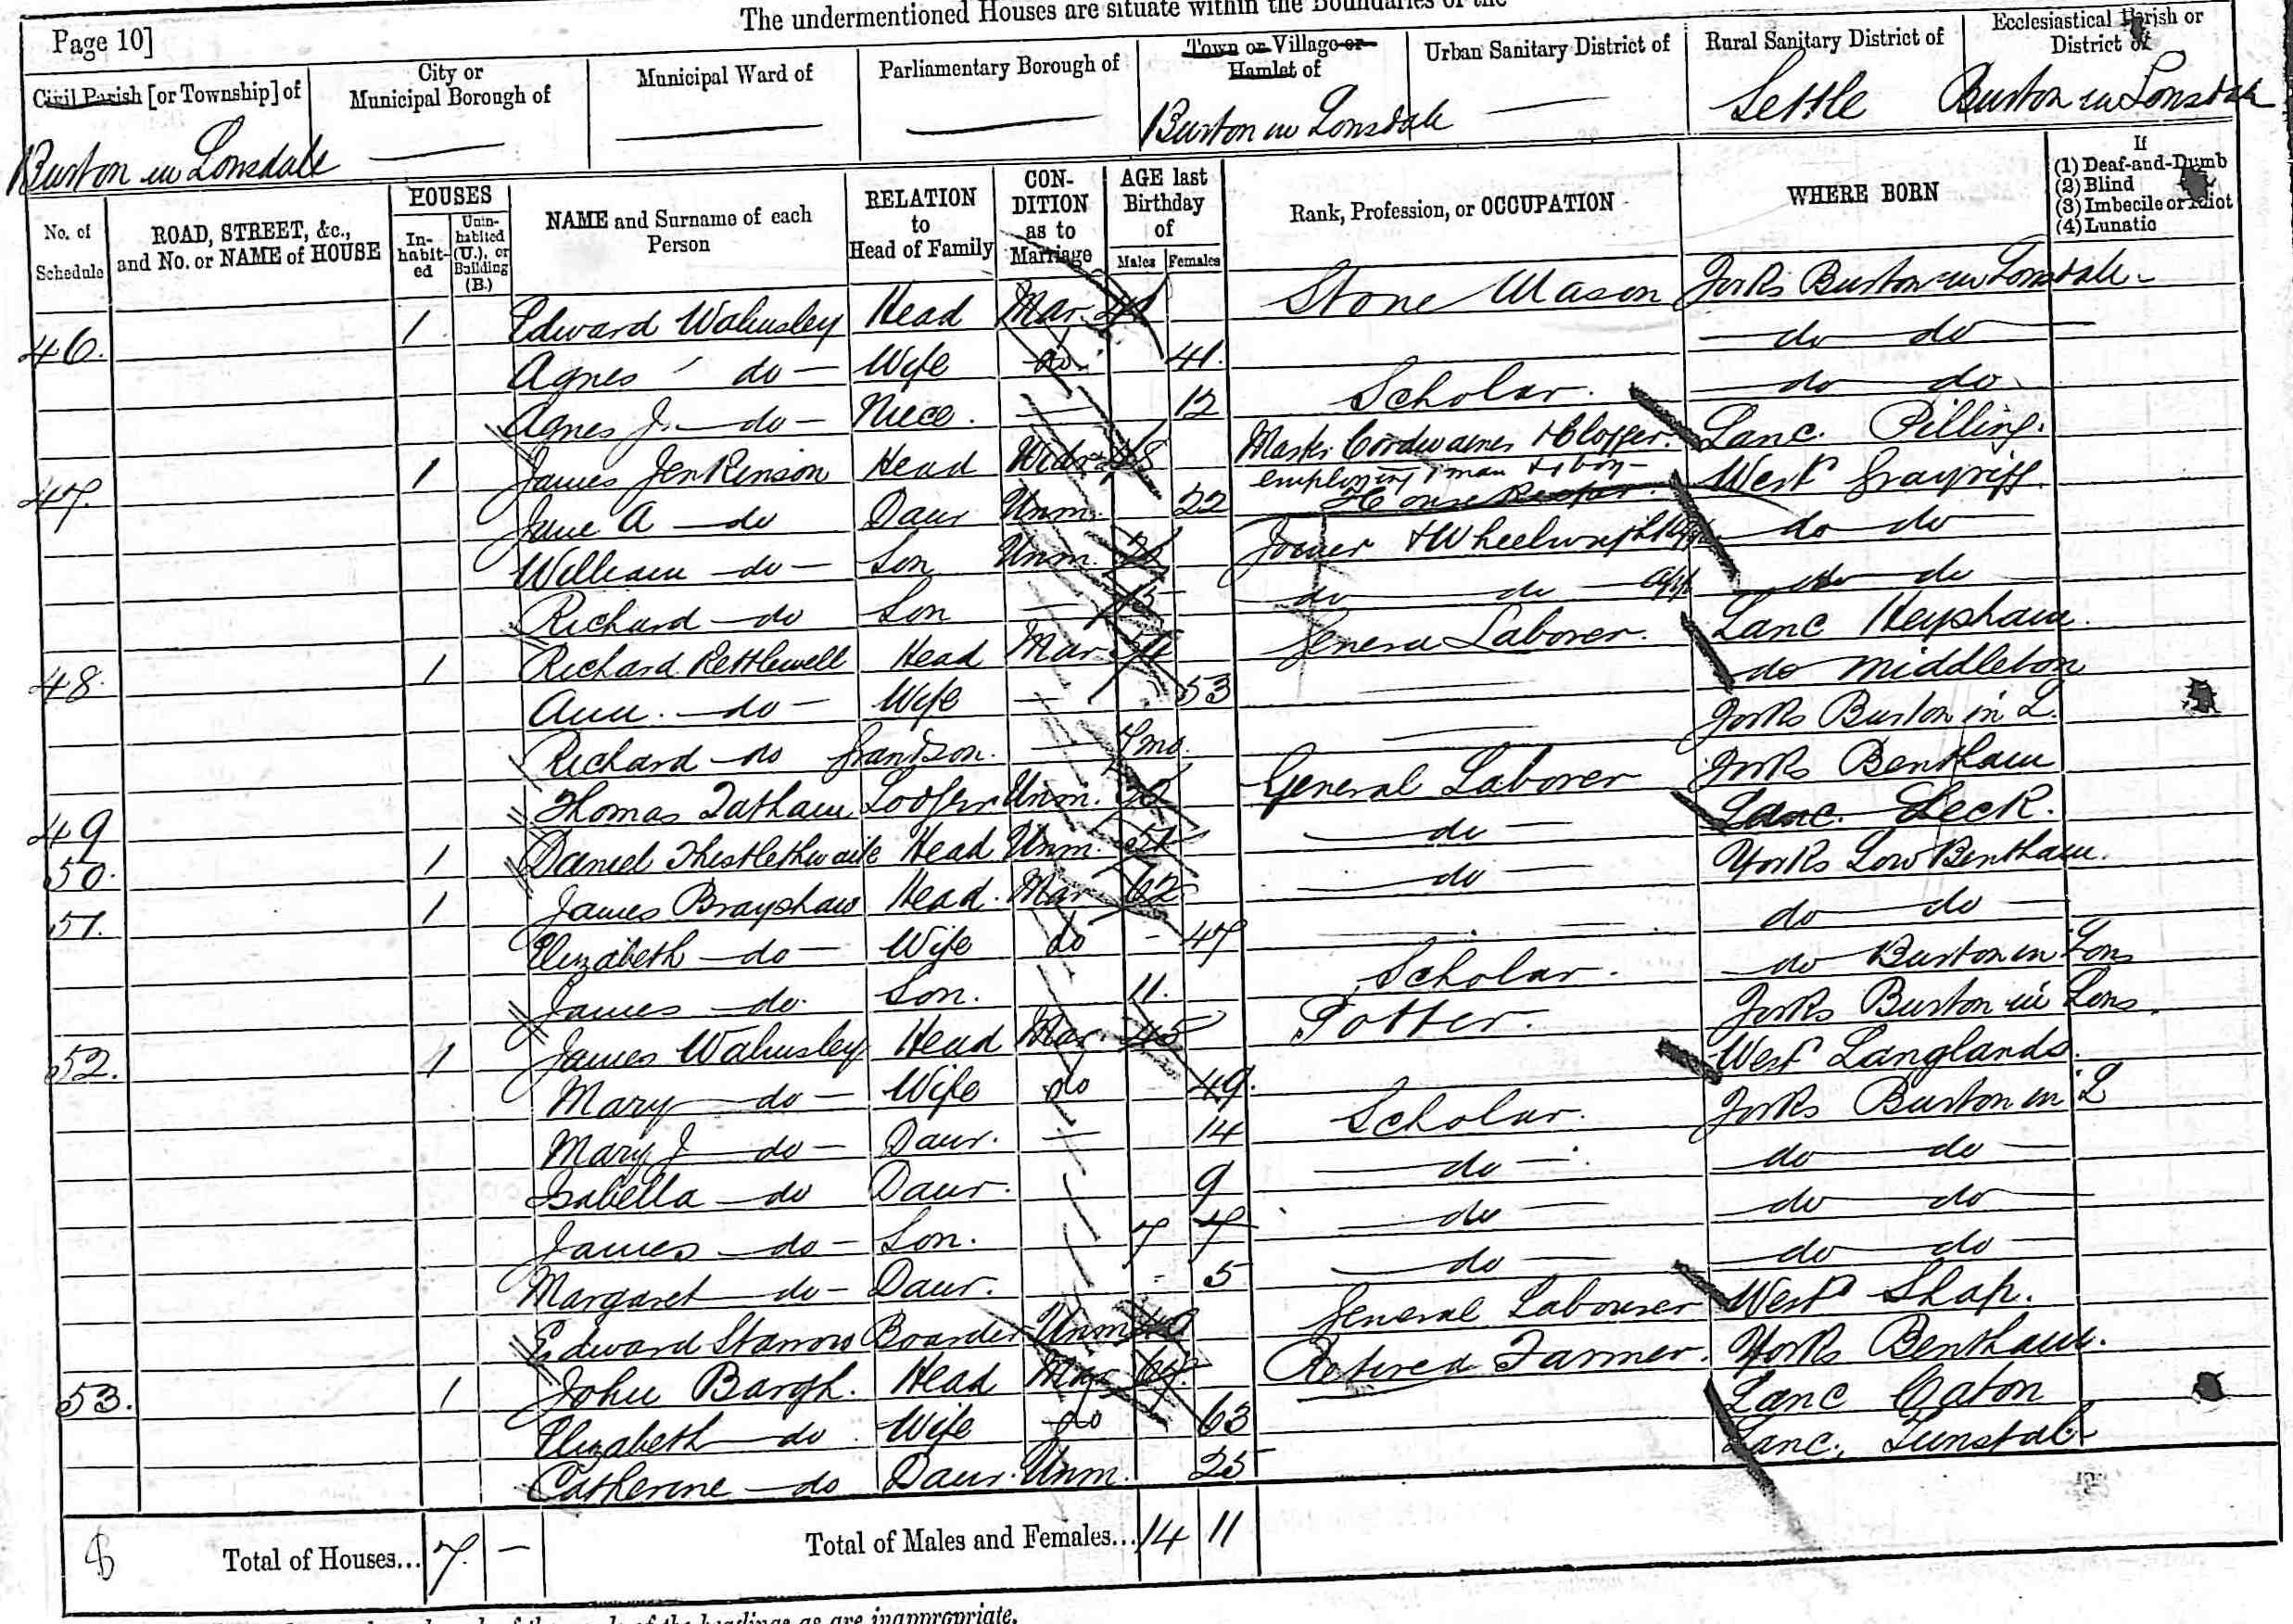 The undermentioned Houses are situate within the Boundaries of the
Page 10]
Civil Parish [or Township] of
City or Municipal Borough of
Municipal Ward of
Parliamentary Borough of
Town or Village or Hamlet of
Urban Sanitary District of
Rural Sanitary District of
Ecclesiastical Parish or District of
Burton in Lonsdale Burton in Lonsdale Settle Burton in Lonsdale
No. of Schedule
ROAD, STREET, &c., and No. or NAME of HOUSE
HOUSES
In-habit-ed
Unin-habited (U.), or Building (B.)
NAME and Surname of each Person
RELATION to Head of Family
CON-DITION as to Marriage
AGE last Birthday of
Males Females
Rank, Profession, or OCCUPATION
WHERE BORN
If
(1) Deaf-and-Dumb
(2) Blind
(3) Imbecile or Idiot
(4) Lunatic
46. 1 Edward Walmsley Head Mar Stone Mason Yorks Burton in Lonsdale
Agnes do Wife do 41 do do
Agnes J. do Niece 12 Scholar do do
47. 1 James Jenkinson Head Widr Master Cordwainer & Clogger employing 1 man & 1 boy Lanc. Pilling
Jane A do Daur Unm. 22 Housekeeper West Grayrigg
William do Son Unm. Joiner & Wheelwright do do
Richard do Son 15 do do app do do
48. 1 Richard Kettlewell Head Mar Genera Laborer Lanc Heysham
Ann do Wife 53 do Middleton
Richard do Grandson 7mo. Yorks Burton in L
49 Thomas Tatham Lodger Unm. General Laborer Yorks Bentham
50. 1 Daniel Thistlethwaite Head Unm. 51 do Lanc. Leck.
51. 1 James Brayshaw Head Mar 62 do Yorks Low Bentham
Elizabeth do Wife do 47 do do
James do Son. 11. Scholar do Burton in Lons
52. 1 James Walmsley Head Mar 45 Potter. Yorks Burton in Lons
Mary do Wife do 49. West Langlands
Mary J do Daur. 14 Scholar Yorks Burton in L
Isabella do Daur. 9 do do do
James do Son. 7 7 do do do
Margaret do Daur. 5 do do do
Edward Boarder Unm General Labourer West Shap.
53. 1 John Bargh. Head Mar Retired Farmer. Yorks Bentham.
Elizabeth do Wife do 63 Lanc Caton
Catherine do Daur. Unm. 25 Lanc. Tunstal
Total of Houses... 7. — Total of Males and Females... 14 11